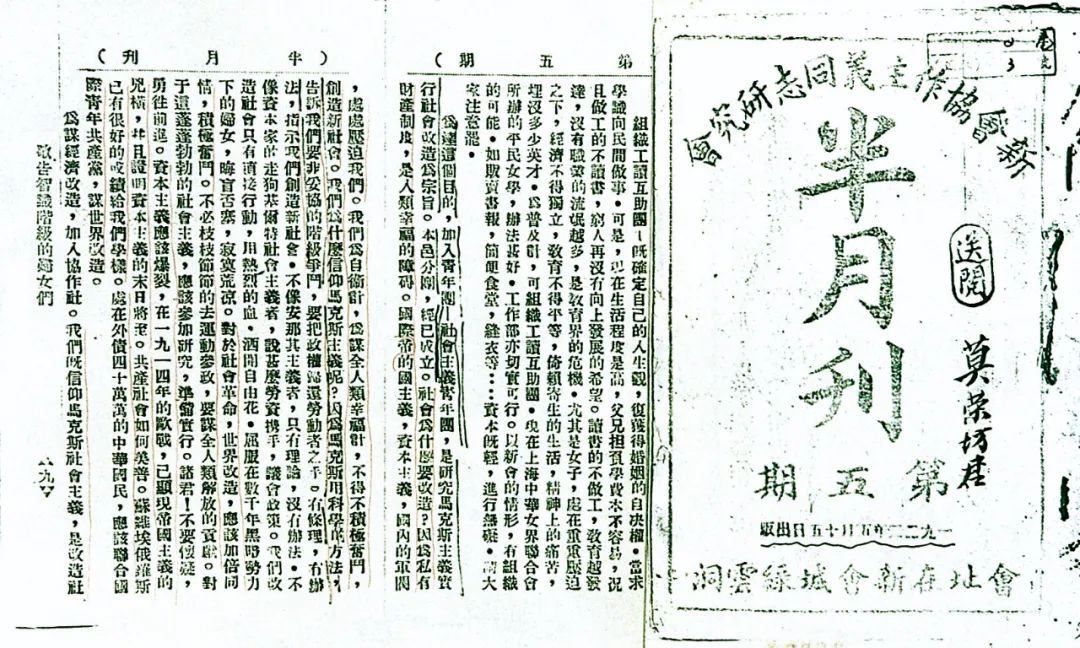 新會協作主義同志研究會
半月刊
送閱
莫荣坊
第五期
一九二二年五月十五日出版
會址在新會城綠雲洞
第五期（
組織工讀互助團—既確定自己的人生觀，復獲得婚姻的自决權。當求
學識向民間做事。可是，現在生活程度是高，父兄担頁學費本不容易，况
且做工的不讀書，窮人再沒有向上發展的希望。讀書的不做工，敎育越發
達，沒有職業的流氓越多，是敎育界的危機。尤其是女子，處在重重壓迫
之下，經濟不得獨立，敎育不得平等，倚賴寄生的生活，精神上的痛苦，
埋沒多少英才。為普及計，可組織工讀互助團。現在上海中華女界聯合會
所辦的平民女學，辦法甚好。工作部亦切實可行。以新會的情形，有組織
的可能。如販賣書報，簡便食堂，縫衣等…資本旣輕，進行無礙。請大
家注意罷。
為達這個目的，加入青年團—社會主義青年團，是研究馬克斯主義實
行社會改造為宗旨。本邑分團，經已成立。社會為什麼要改造？因為私有
財產制度，是人類幸福的障碍。國際帝的國主義，資本主義，國內的軍閥
（半月刊）
，處處壓迫我們。我們為自衞計，為謀全人類幸福計，不得不積極奮鬥，
創造新社會。我們為什麼信仰馬克斯主義呢？因為馬克斯用科學的方法，
告訴我們要非妥協的階級爭鬥，要把政權歸還勞動者之手。有條理，有辦
法，指示我們創造新社會。不像安那其主義者，只有理論，沒有辦法。不
像資本家的走狗基爾特社會主義者，說甚麼勞資携手，議會政策。我們改
造社會只有直接行動，用熱烈的血。洒開自由花。屈服在數千年黑暗勢力
下的婦女，晦盲否塞，寂寞荒凉。對於社會革命，世界改造，應該加倍同
情，積極奮鬥。不必枝枝節節的去運動參政，要謀全人類解放的貢獻。對
于這蓬蓬勃勃的社會主義，應該參加研究，準備實行。諸君！不要懷疑，
勇往前進。資本主義應該爆裂，在一九一四年的歐戰，已顯現帝國主義的
兇橫，並且證明資本主義的末日將至。共產社會如何美善。蘇維埃俄羅斯
已有很好的成績給我們學樣。處在外債四十萬萬的中華國民，應該聯合國
際青年共產黨，謀世界改造。
為謀經濟改造，加入協作社。我們旣信仰馬克斯社會主義，是改造社
敬告智識階級的婦女們
九